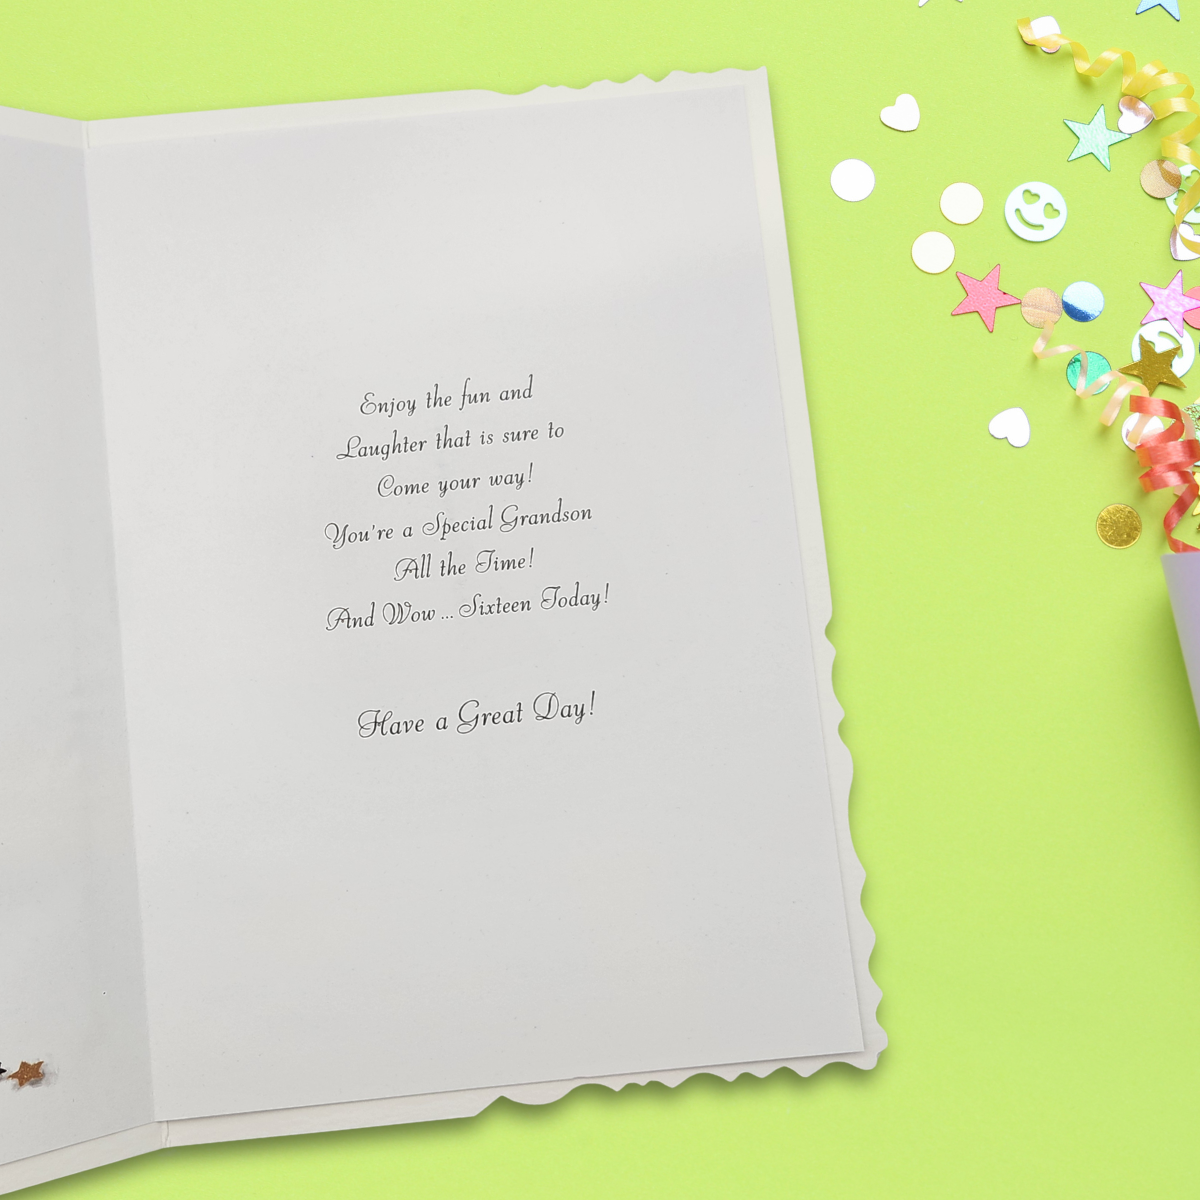 Enjoy the fun and
Laughter that is sure to
Come your way!
You're a Special Grandson
All the Time!
And Wow ... Sixteen Today!
Have a Great Day!